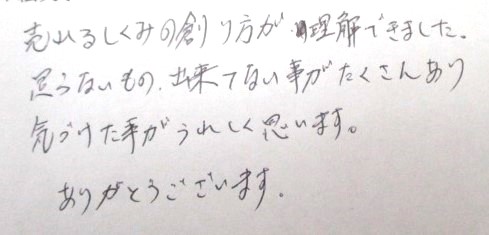 売れるしくみの創り方が理解できました。
思うないもの、出来てない事がたくさんあり
気づけた事がうれしく思います。
ありがとうございます.